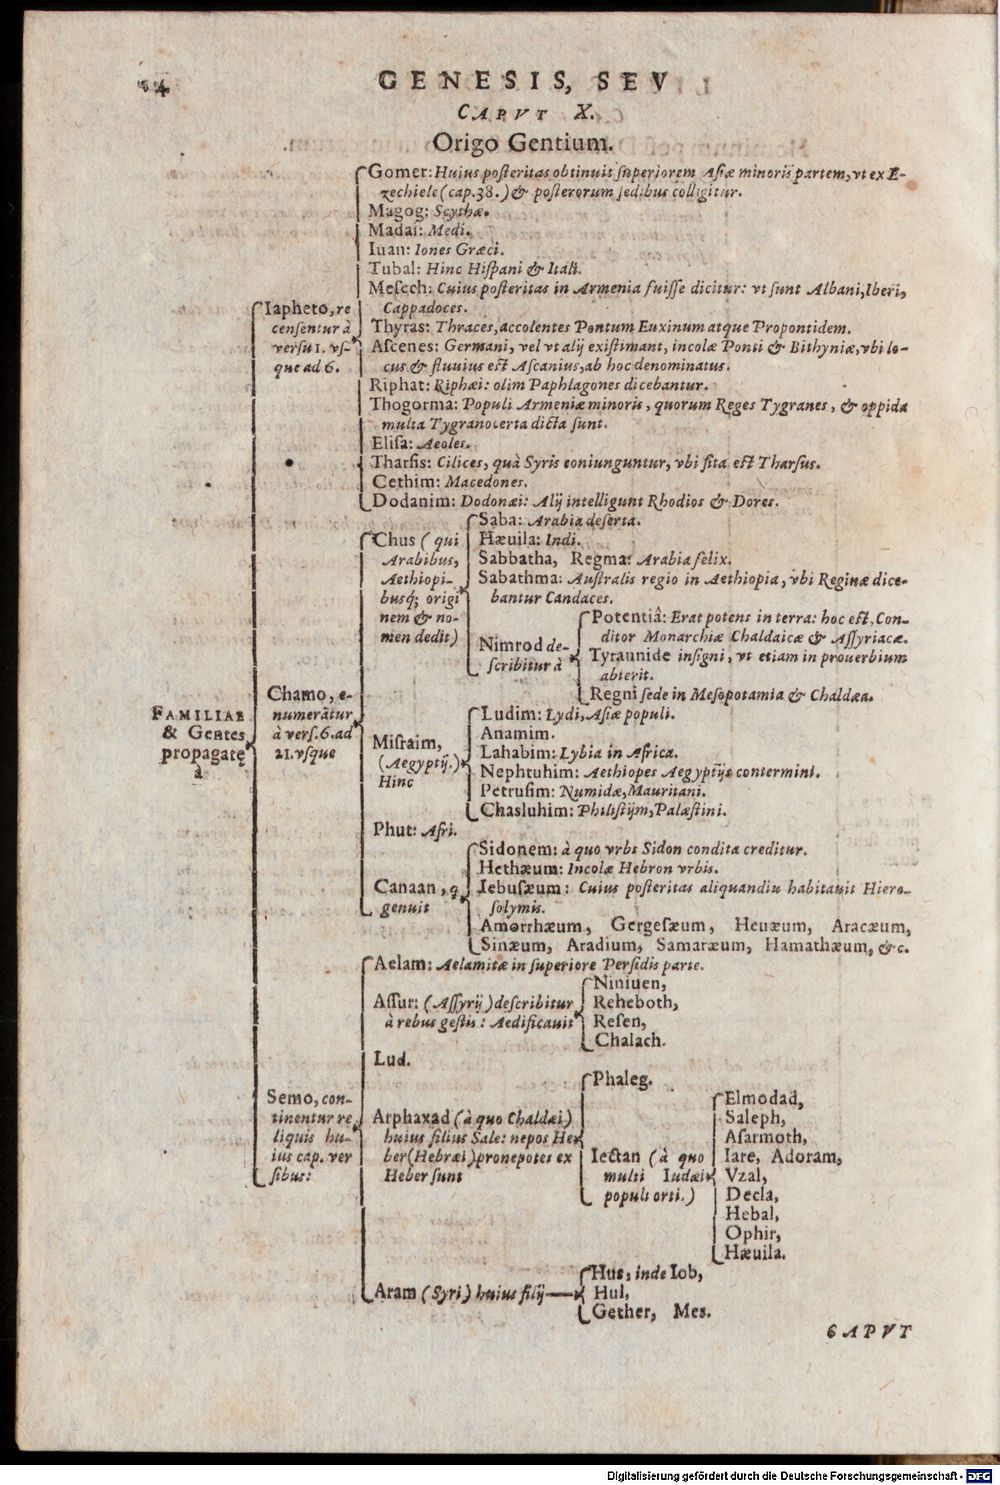 64
GENESIS, SEV
CAPVT X.
Origo Gentium.
Gomer: Huius posteritas obtinuit superiorem Asiæ minoris partem, vt ex E-
zechiele (cap. 38.) & posterorum sedibus colligitur.
Magog: Scythæ.
Madai: Medi.
Iuan: Iones Græci.
Tubal: Hinc Hispani & Itali.
Mesech: Cuius posteritas in Armenia fuisse dicitur: vt sunt Albani, Iberi,
Cappadoces.
Thyras: Thraces, accolentes Pontum Euxinum atque Propontidem.
Ascenes: Germani, vel vt alij existimant, incolæ Ponti & Bithyniæ, vbi lo-
cus & fluuius est Ascanius, ab hoc denominatus.
Riphat: Riphæi: olim Paphlagones dicebantur.
Thogorma: Populi Armeniæ minoris, quorum Reges Tygranes, & oppida
multa Tygranocerta dicta sunt.
Elisa: Aeoles.
Tharsis: Cilices, quà Syris coniunguntur, vbi sita est Tharsus.
Cethim: Macedones.
Dodanim: Dodonæi: Alij intelligunt Rhodios & Dores.
Iapheto, re
censentur à
versu 1. vs-
que ad 6.
FAMILIAE
& Gentes
propagatę
à
Chamo, e-
numerātur
à vers. 6. ad
21. vsque
Chus (qui
Arabibus,
Aethiopi-
busq; origi
nem & no-
men dedit)
Saba: Arabia deserta.
Hæuila: Indi.
Sabbatha, Regma: Arabia felix.
Sabathma: Australis regio in Aethiopia, vbi Reginæ dice-
bantur Candaces.
Nimrod de-
scribitur à
Potentiâ: Erat potens in terra: hoc est, Con-
ditor Monarchiæ Chaldaicæ & Assyriacæ.
Tyraunide insigni, vt etiam in prouerbium
abierit.
Regni sede in Mesopotamia & Chaldæa.
Misraim,
(Aegyptij.)
Hinc
Ludim: Lydi, Asiæ populi.
Anamim.
Lahabim: Lybia in Africa.
Nephtuhim: Aethiopes Aegyptijs contermini.
Petrusim: Numidæ, Mauritani.
Chasluhim: Philistijm, Palæstini.
Phut: Afri.
Canaan, q
genuit
Sidonem: à quo vrbs Sidon condita creditur.
Hethæum: Incolæ Hebron vrbis.
Iebusæum: Cuius posteritas aliquandiu habitauit Hiero-
solymis.
Amorrhæum, Gergesæum, Heuæum, Aracæum,
Sinæum, Aradium, Samaræum, Hamathæum, &c.
Semo, con-
tinentur re
liquis hu-
ius cap. ver
sibus:
Aelam: Aelamitæ in superiore Persidis parte.
Assur: (Assyrij) describitur
à rebus gestis: Aedificauit
Niniuen,
Reheboth,
Resen,
Chalach.
Lud.
Arphaxad (à quo Chaldæi)
huius filius Sale: nepos He
ber (Hebræi) pronepotes ex
Heber sunt
Phaleg.
Iectan (à quo
multi Iudæi
populi orti.)
Elmodad,
Saleph,
Asarmoth,
Iare, Adoram,
Vzal,
Decla,
Hebal,
Ophir,
Hæuila.
Aram (Syri) huius filij
Hus, inde Iob,
Hul,
Gether, Mes.
CAPVT
Digitalisierung gefördert durch die Deutsche Forschungsgemeinschaft - DFG